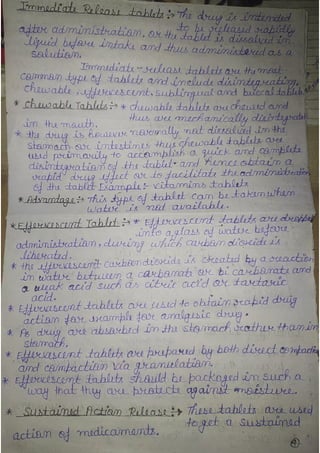 Immediate Release tablets :- The drug is intended
to be released rapidly
after administration, or the tablet is dissolved in
liquid before intake and thus administered as a
solution.
Immediate-release tablets are the most
common type of tablets and include disintegrating,
chewable, effervescent, sublingual and buccal tablets
* Chewable Tablets :- * chewable tablets are chewed and
thus are mechanically disintegrated
in the mouth.
* the drug is however normally not dissolved in the
stomach or intestines thus chewable tablets are
used primarily to accomplish a quick and complete
disintegration of the tablet - and hence obtain a
rapid drug effect or to facilitate the administration
of the tablet Example :- vitamins tablets
* Advantage :- This type of tablet can be taken when
water is not available.
* Effervescent Tablet :- * Effervescent tablets are dropped
into a glass of water before
administration, during which carbon dioxide is
liberated.
* the effervescent carbon dioxide is created by a reaction
in water between a carbonate or bi carbonate and
a weak acid such as citric acid or tartaric
acid.
* Effervescent tablets are used to obtain rapid drug
action for example for analgesic drug.
* As drug are absorbed in the stomach, rather than in
stomath.
* Effervescent tablets are prepared by both direct compaction
and compaction via granulation.
* effervescent tablets should be packaged in such a
way that they are protects against moisture.
* Sustained Action Release :-> These tablets are used
to get a sustained
action of medicaments.